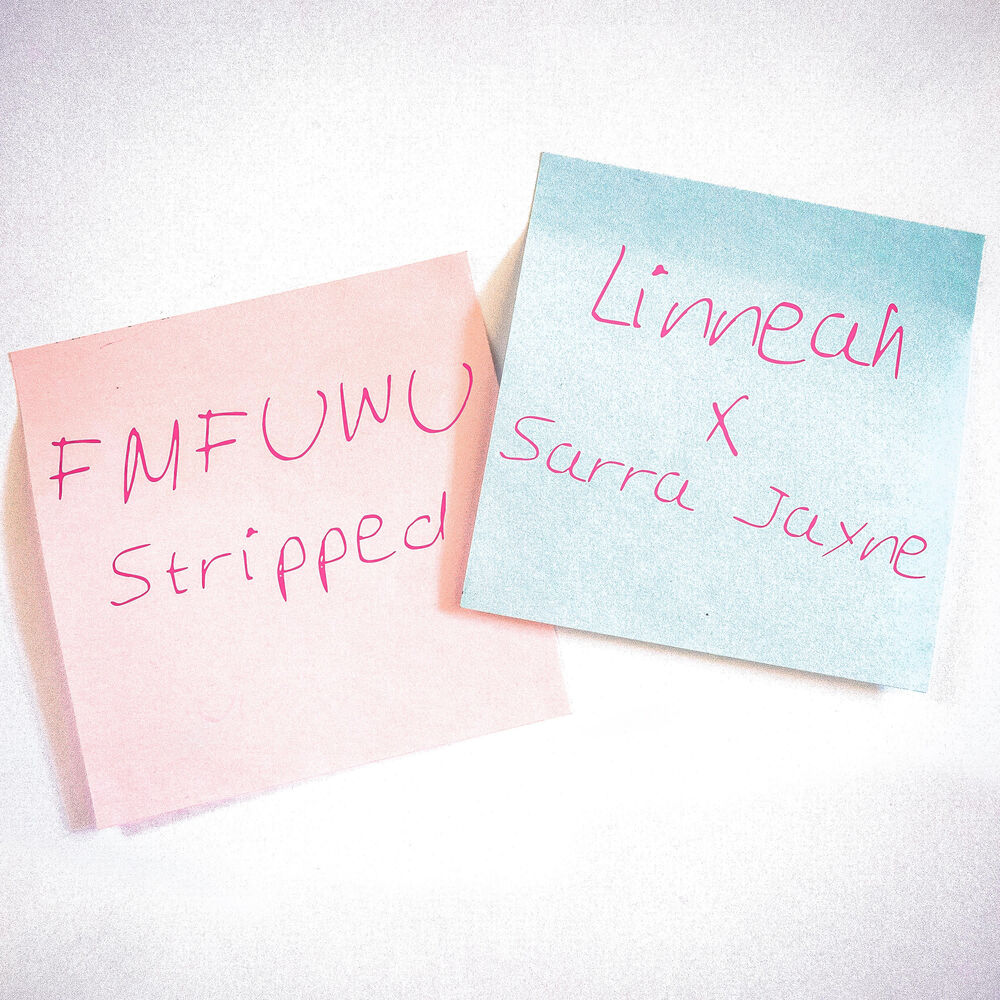 FMFUWU
Stripped
Linneah
X
Sarra Jayne